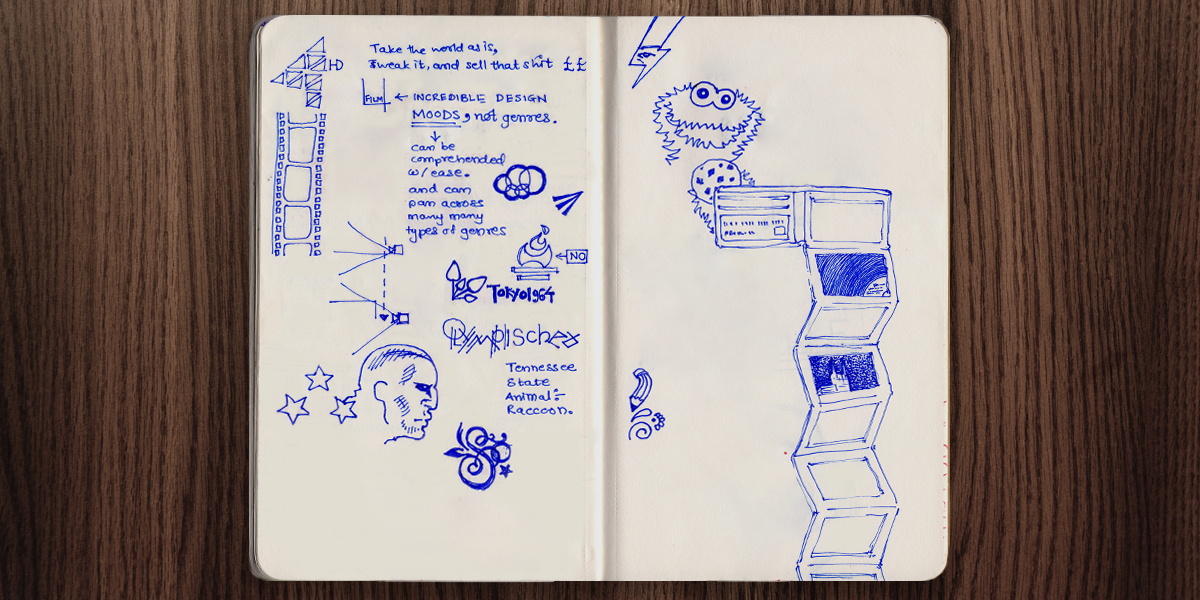 Take the world as is,
tweak it, and sell that shit ££
HD
FILM ← INCREDIBLE DESIGN
MOODS, not genres.
can be
comprehended
w/ ease.
and can
pan across
many many
types of genres
NO
TOKYO1964
Olympisches
Tennessee
State
Animal:-
Raccoon.